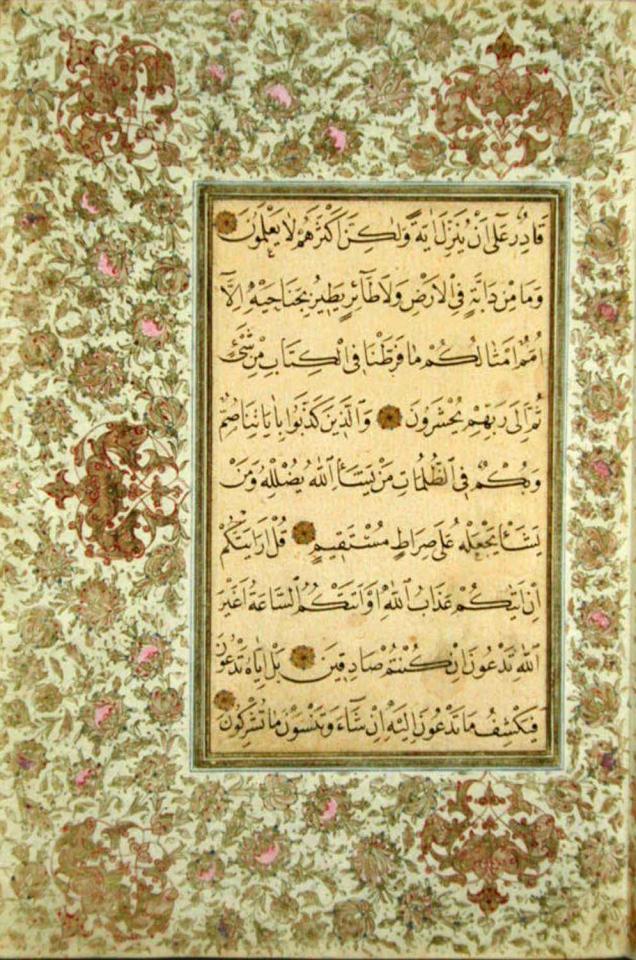 قَادِرٌ عَلٰٓى اَنْ يُنَزِّلَ اٰيَةً وَلٰكِنَّ اَكْثَرَهُمْ لَا يَعْلَمُونَ
وَمَا مِنْ دَٓابَّةٍ فِى الْاَرْضِ وَلَا طَٓائِرٍ يَطِيرُ بِجَنَاحَيْهِ اِلَّٓا
اُمَمٌ اَمْثَالُكُمْ مَا فَرَّطْنَا فِى الْكِتَابِ مِنْ شَىْءٍ
ثُمَّ اِلٰى رَبِّهِمْ يُحْشَرُونَ وَالَّذِينَ كَذَّبُوا بِاٰيَاتِنَا صُمٌّ
وَبُكْمٌ فِى الظُّلُمَاتِ مَنْ يَشَأِ اللّٰهُ يُضْلِلْهُ وَمَنْ
يَشَأْ يَجْعَلْهُ عَلٰى صِرَاطٍ مُسْتَقِيمٍ قُلْ اَرَاَيْتَكُمْ
اِنْ اَتٰيكُمْ عَذَابُ اللّٰهِ اَوْ اَتَتْكُمُ السَّاعَةُ اَغَيْرَ
اللّٰهِ تَدْعُونَ اِنْ كُنْتُمْ صَادِقِينَ بَلْ اِيَّاهُ تَدْعُونَ
فَيَكْشِفُ مَا تَدْعُونَ اِلَيْهِ اِنْ شَٓاءَ وَتَنْسَوْنَ مَا تُشْرِكُونَ